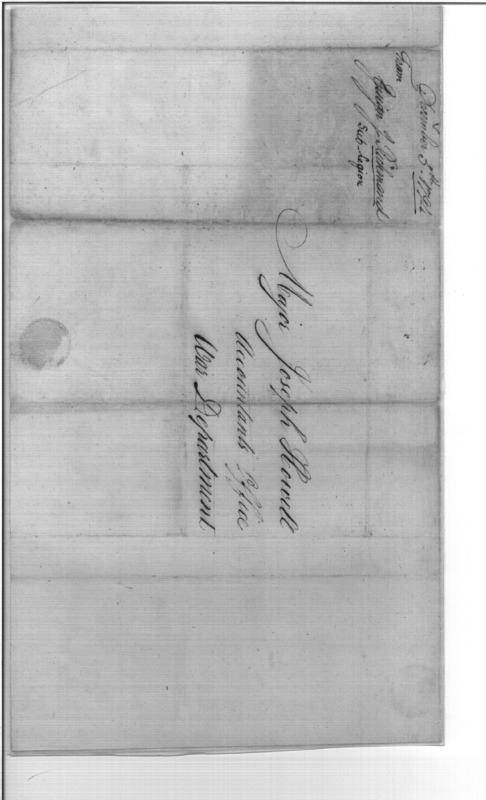 December 5th 1792
From
Ensign
Sub Legion
Major Joseph Howell
Accountants Office
War Department